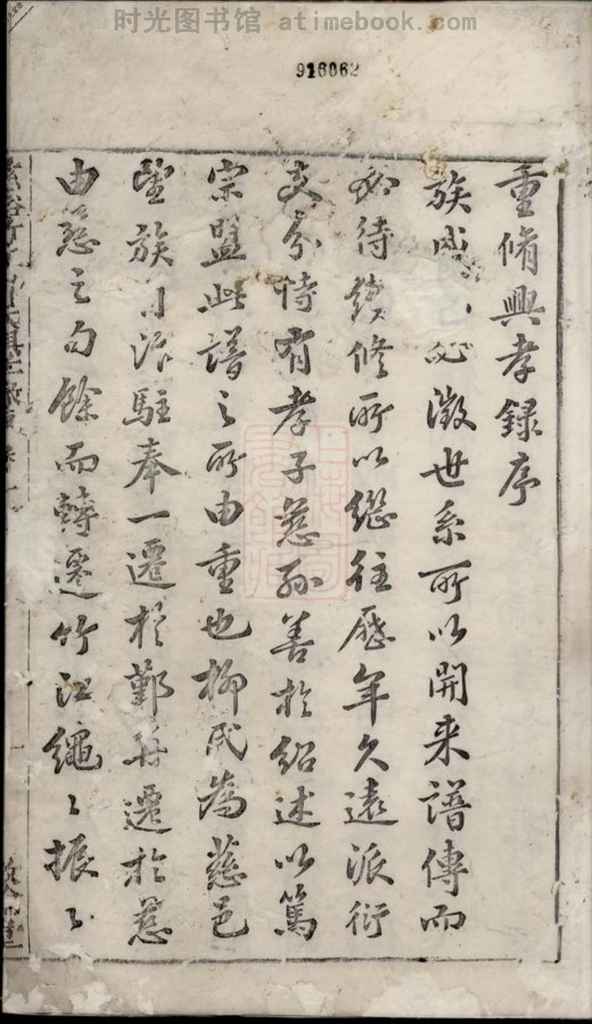 时光图书馆 atimebook.com
916062
重脩興孝錄序
族必徵世系所以開来譜傳而
必待續修所以繼往歷年久遠派衍
支分恃有孝子慈孫善於紹述以篤
宗盟此譜之所由重也柳氏為慈邑
望族派駐奉一遷於鄞再遷於慈
由慈之句餘而轉遷竹江繩〻振〻